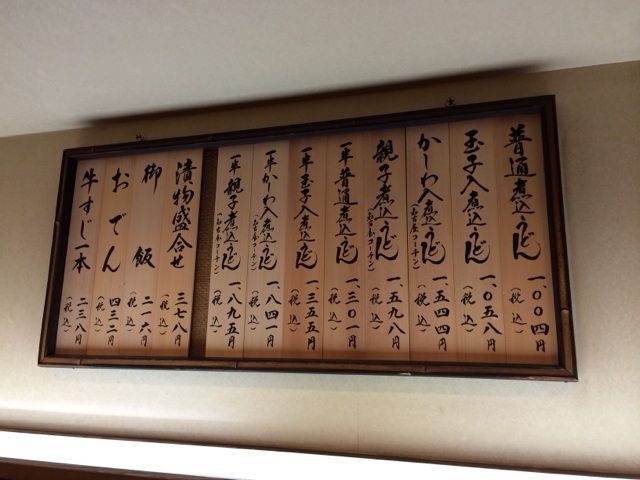 普通煮込うどん 一、〇〇四円
(税込)
玉子入煮込うどん 一、〇五八円
(税込)
かしわ入煮込うどん 一、五四四円
(名古屋コーチン) (税込)
親子煮込うどん 一、五九八円
(名古屋コーチン) (税込)
一半普通煮込うどん 一、三〇一円
(税込)
一半玉子入煮込うどん 一、三五五円
(税込)
一半かしわ入煮込うどん 一、八四一円
(名古屋コーチン) (税込)
一半親子煮込うどん 一、八九五円
(名古屋コーチン) (税込)
漬物盛合せ 三七八円
(税込)
御飯 二一六円
(税込)
おでん 四三二円
(税込)
牛すじ一本 二三八円
(税込)